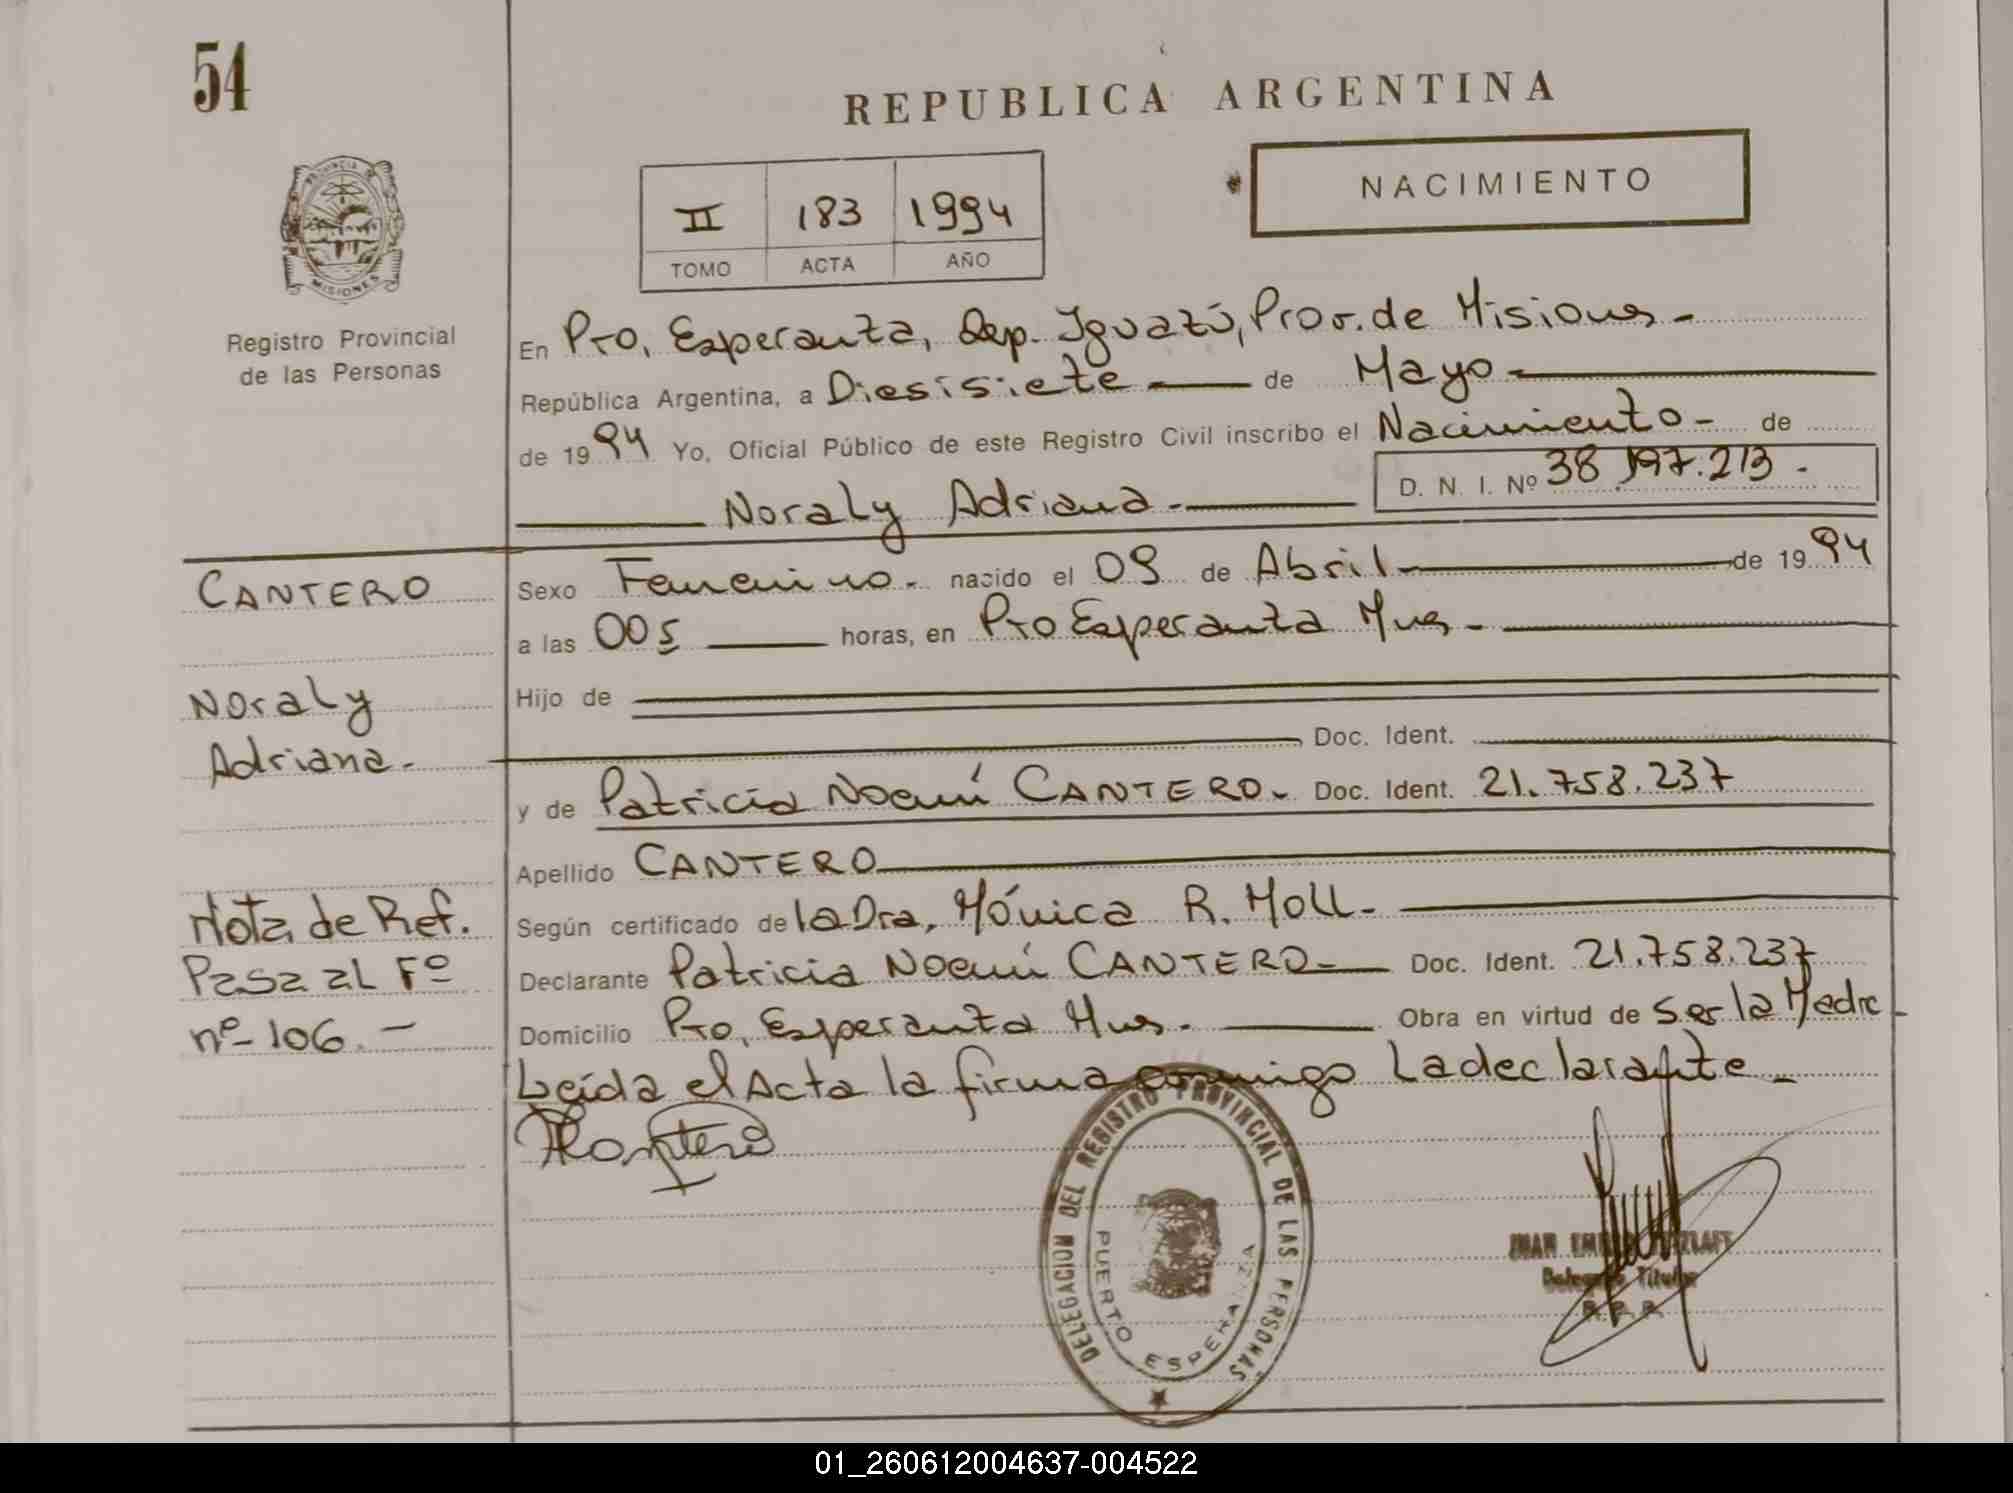 54
REPUBLICA ARGENTINA
NACIMIENTO
II 183 1994
TOMO ACTA AÑO
PROVINCIA DE
MISIONES
Registro Provincial
de las Personas
En Pto. Esperanza, Dep. Iguazú, Prov. de Misiones -
República Argentina, a Diesisiete de Mayo
de 1994 Yo, Oficial Público de este Registro Civil inscribo el Nacimiento - de
D. N. I. Nº 38.197.213 -
Noraly Adriana -
CANTERO
Sexo Femenino - nacido el 09 de Abril de 1994
a las 005 horas, en Pto Esperanza Mnes -
Noraly
Adriana -
Hijo de
Doc. Ident.
y de Patricia Noemí CANTERO - Doc. Ident. 21.758.237
Apellido CANTERO
Nota de Ref.
Pasa al Fº
nº 106. -
Según certificado de la Dra. Mónica R. Moll -
Declarante Patricia Noemí CANTERO - Doc. Ident. 21.758.237
Domicilio Pto. Esperanza Mnes. - Obra en virtud de ser la Madre
Leída el Acta la firma conmigo La declarante -
DELEGACION DEL REGISTRO PROVINCIAL DE LAS PERSONAS
PUERTO ESPERANZA
JUAN
Delegado Titular
R. P. P.
01_260612004637-004522